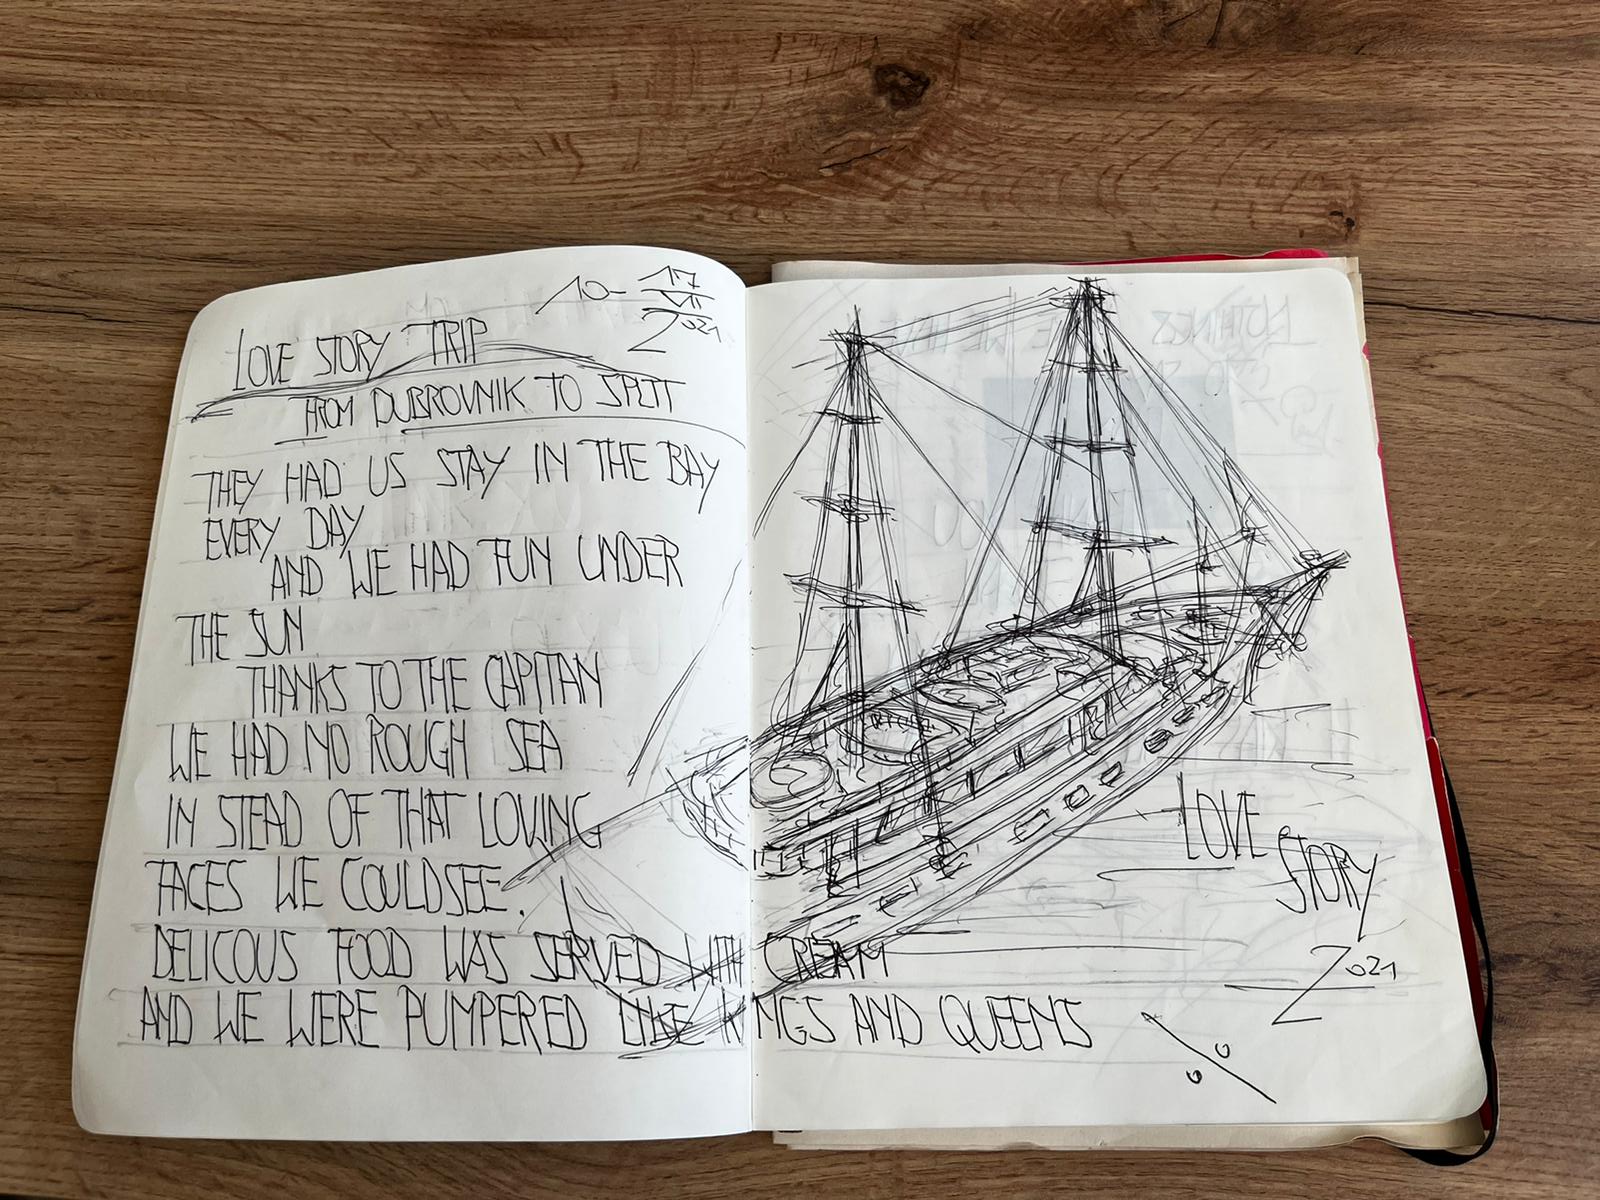 10-17
VII
2021
LOVE STORY TRIP
FROM DUBROVNIK TO SPLIT
THEY HAD US STAY IN THE BAY
EVERY DAY
AND WE HAD FUN UNDER
THE SUN
THANKS TO THE CAPITAN
WE HAD NO ROUGH SEA
IN STEAD OF THAT LOVING
FACES WE COULD SEE.
DELICOUS FOOD WAS SERVED WITH CREAM
AND WE WERE PUMPERED LIKE KINGS AND QUEENS
LOVE
STORY
2021